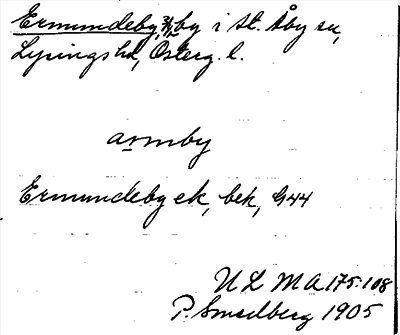 Ermundeby, 3/4 by i St. Åby sn,
Lysings hd, Österg. l.
armby
Ermundeby ek, bek, G44
U L M A 175:108
P. Smedberg 1905